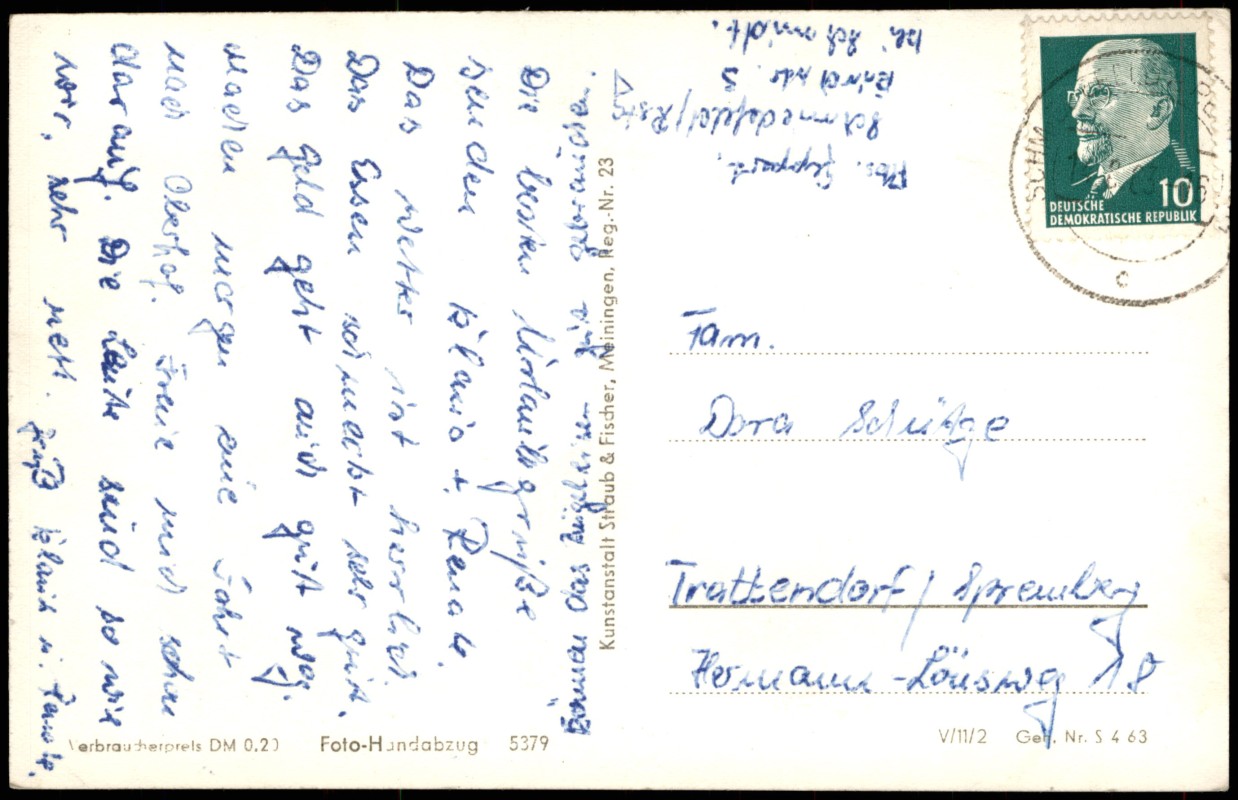 Die besten Urlaubsgrüße
senden Klaus + Renate.
Das Wetter ist herrlich.
Das Essen schmeckt sehr gut.
Das Geld geht auch gut weg.
Machen morgen eine Fahrt
nach Oberhof. Freue mich schon
darauf. Die Leute sind so wie
wir, sehr nett.
Gruß Klaus u. Renate.
Können das Bügeleisen gut gebrauchen.
Kunstanstalt Straub & Fischer, Meiningen, Reg.-Nr. 23
Abs. Geppert,
Schmiedefeld/Rstg
5
bei Schmidt.
10
DEUTSCHE
DEMOKRATISCHE REPUBLIK
Fam.
Dora Schütze
Trattendorf/Spremberg
Hermann-Lönsweg 18
Verbraucherpreis DM 0,20 Foto-Handabzug 5379
V/11/2 Geh. Nr. S 4 63